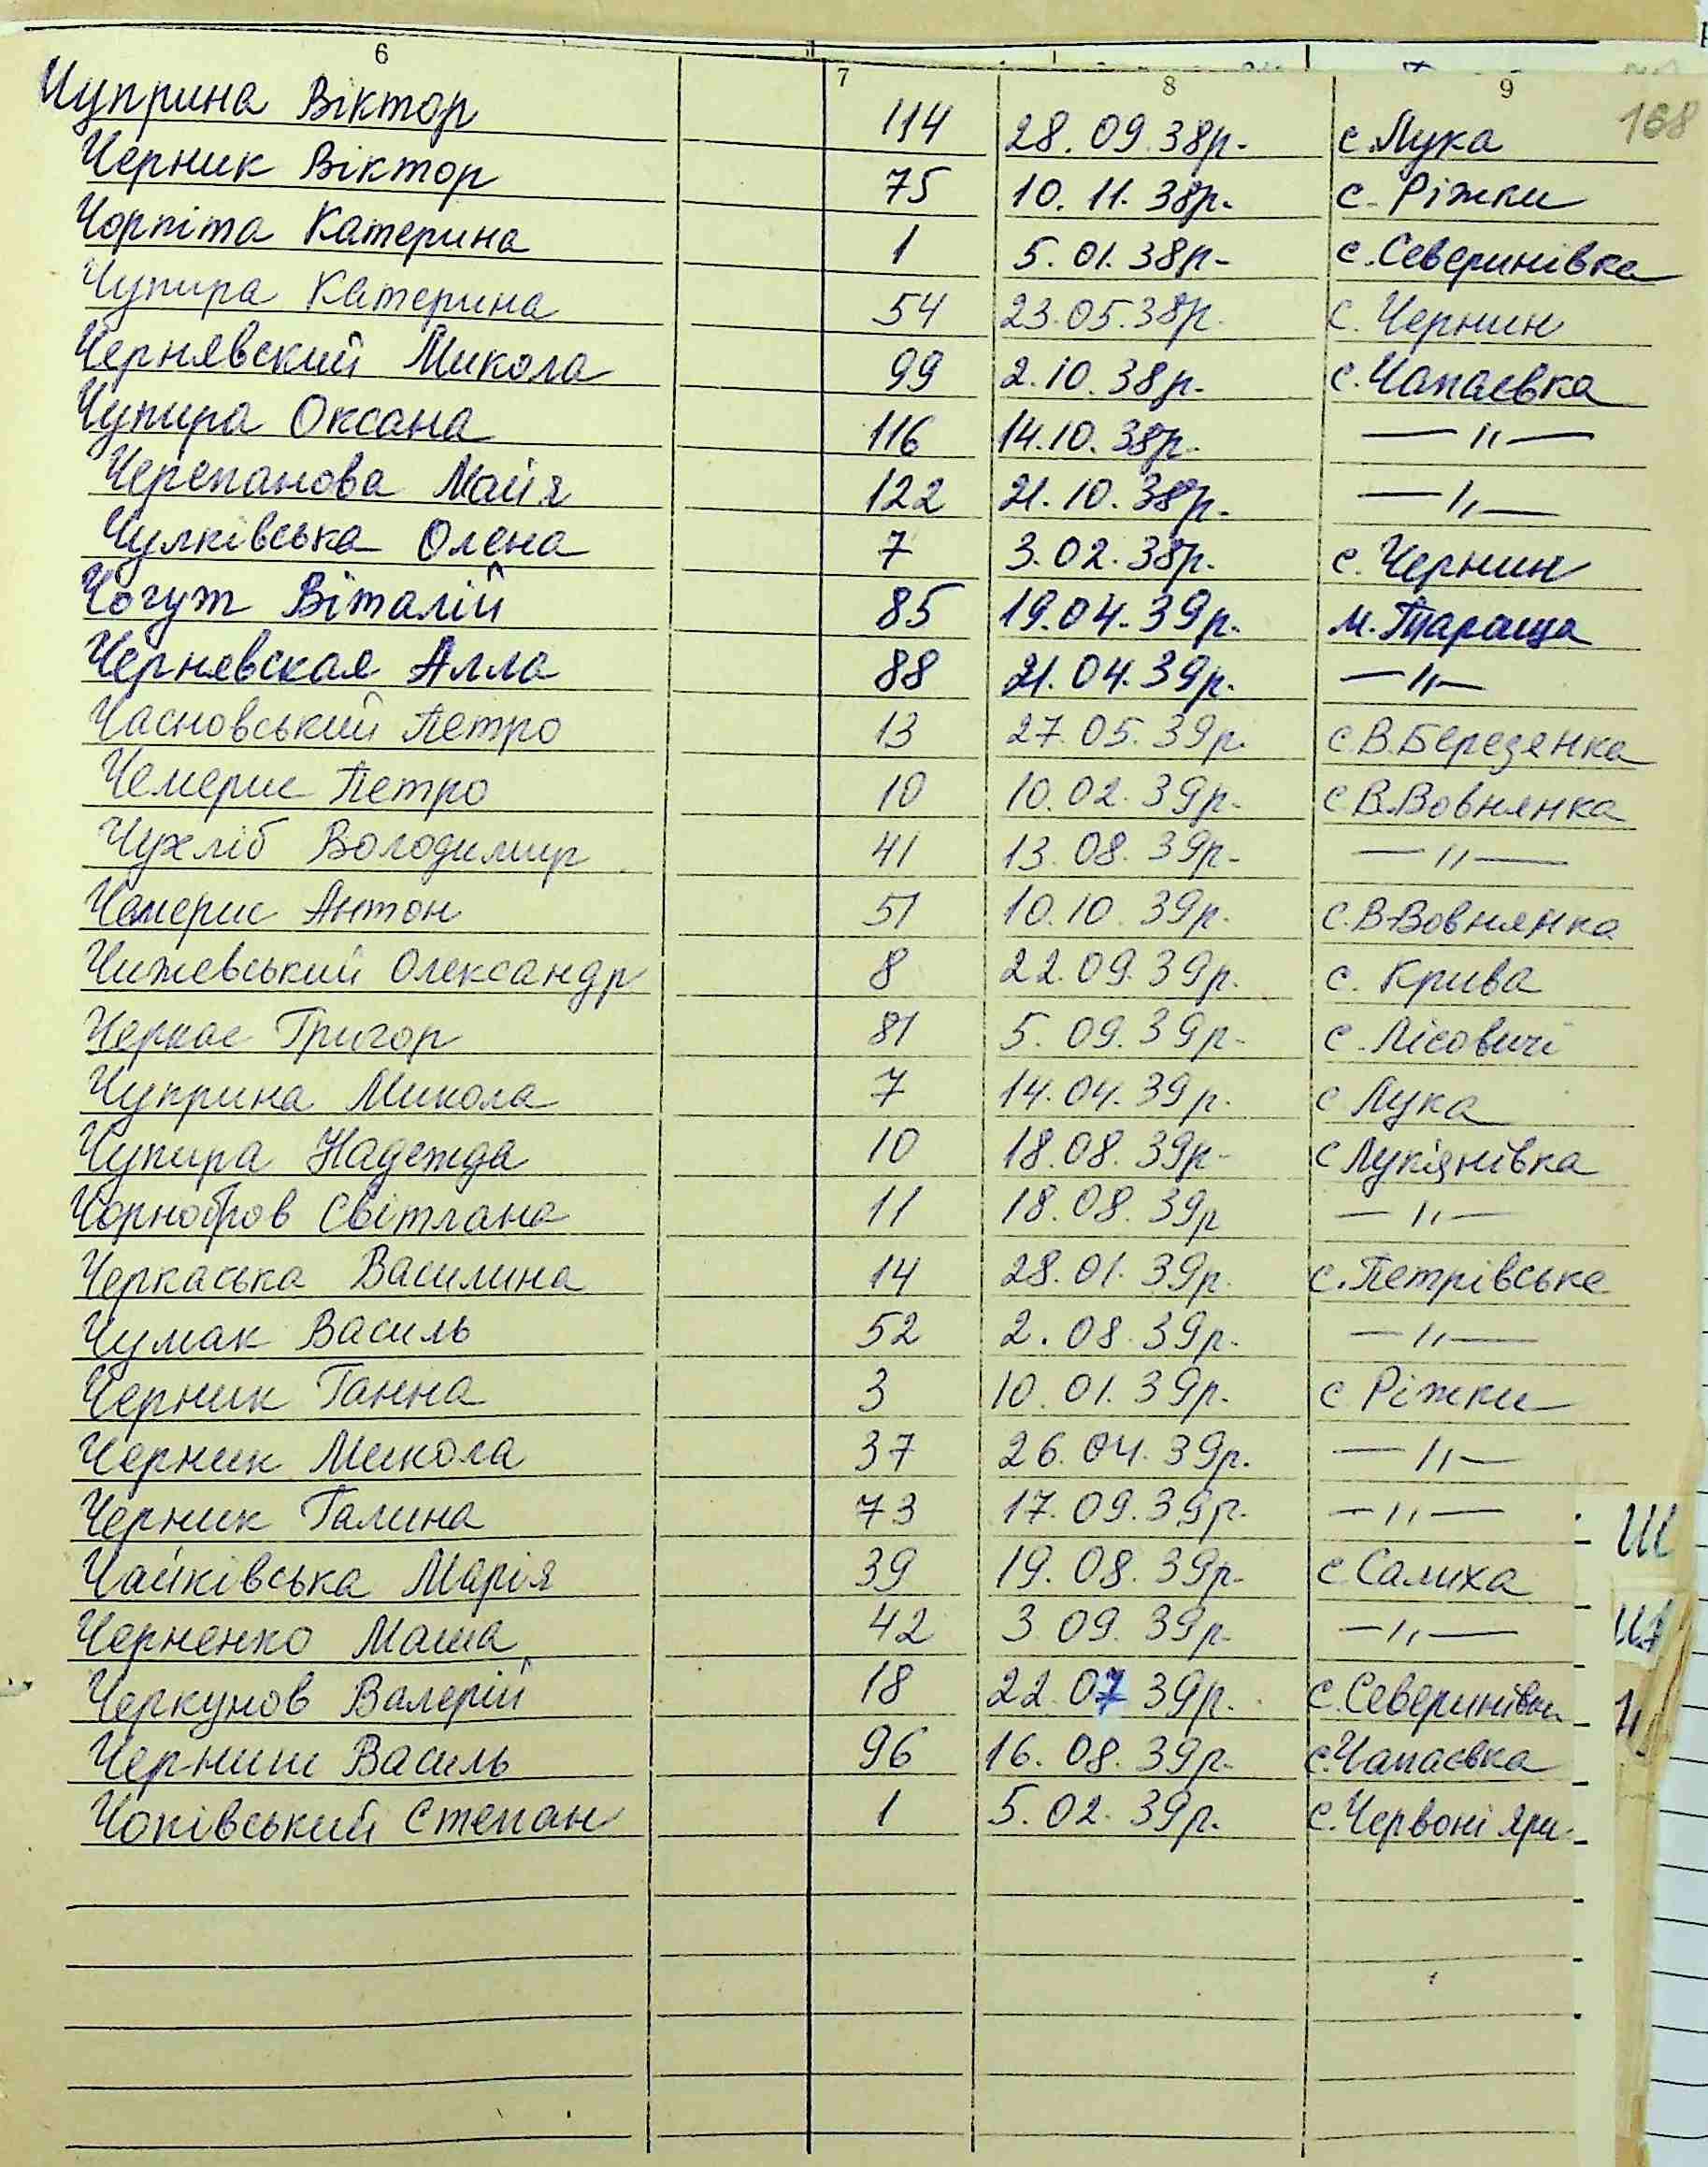 6 7 8 9
168
Чуприна Віктор 114 28.09.38р. с.Лука
Черник Віктор 75 10.11.38р. с. Ріжки
Чорпіта Катерина 1 5.01.38р. с.Северинівка
Чупира Катерина 54 23.05.38р. с. Чернин
Чернявский Микола 99 2.10.38р. с.Чапаєвка
Чупира Оксана 116 14.10.38р. — " —
Черепанова Майя 122 21.10.38р. — " —
Чулківська Олена 7 3.02.38р. с. Чернин
Чогут Віталій 85 19.04.39р. м.Тараща
Чернявская Алла 88 21.04.39р. — " —
Часновський Петро 13 27.05.39р. с.В.Березянка
Чемерис Петро 10 10.02.39р. с.В.Вовнянка
Чухліб Володимир 41 13.08.39р. — " —
Чемерис Антон 51 10.10.39р. с.В.Вовнянка
Чижевський Олександр 8 22.09.39р. с. Крива
Черкас Григор 81 5.09.39р. с.Лісовичі
Чуприна Микола 7 14.04.39р. с Лука
Чупира Надежда 10 18.08.39р. с Лук'янівка
Чорнобров Світлана 11 18.08.39р — " —
Черкаська Василина 14 28.01.39р. с.Петрівське
Чумак Василь 52 2.08.39р. — " —
Черник Ганна 3 10.01.39р. с Ріжки
Черник Микола 37 26.04.39р. — " —
Черник Галина 73 17.09.39р. — " —
Чайківська Марія 39 19.08.39р. с.Салиха
Черненко Маша 42 3.09.39р. — " —
Черкунов Валерій 18 22.07.39р. с.Северинівка
Черниш Василь 96 16.08.39р. с.Чапаєвка
Чопівський Степан 1 5.02.39р. с.Червоні Яри